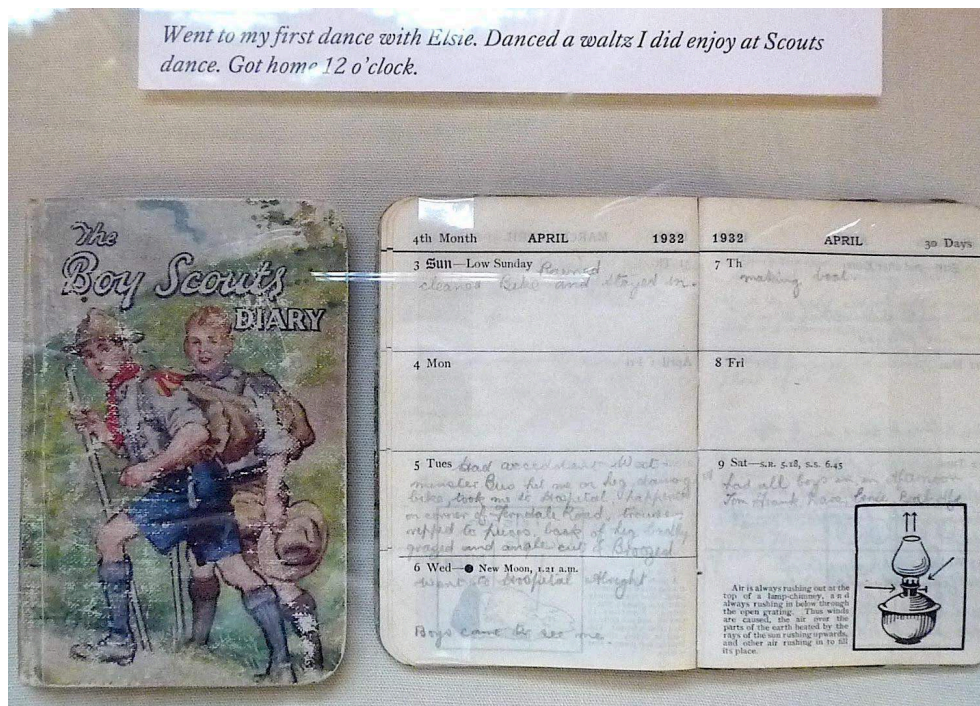 Went to my first dance with Elsie. Danced a waltz I did enjoy at Scouts
dance. Got home 12 o'clock.
The
Boy Scouts
DIARY
4th Month APRIL 1932
3 Sun—Low Sunday Rained
cleaned Bike and stayed in.
4 Mon
5 Tues Had accident West
minster Bus hit me on leg
bike, took me to Hospital happened
on corner of Ferndale Road, trousers
ripped to pieces, back of leg badly
grazed and cut &
6 Wed—● New Moon, 1.21 a.m.
went to Hospital Alright
Boys came to see me.
1932 APRIL 30 Days
7 Th
making boat.
8 Fri
9 Sat—S.R. 5.18, S.S. 6.45
had all boys in in afternoon
Tom Frank
Air is always rushing out at the
top of a lamp-chimney, and
always rushing in below through
the open grating. Thus winds
are caused, the air over the
parts of the earth heated by the
rays of the sun rushing upwards,
and other air rushing in to fill
its place.